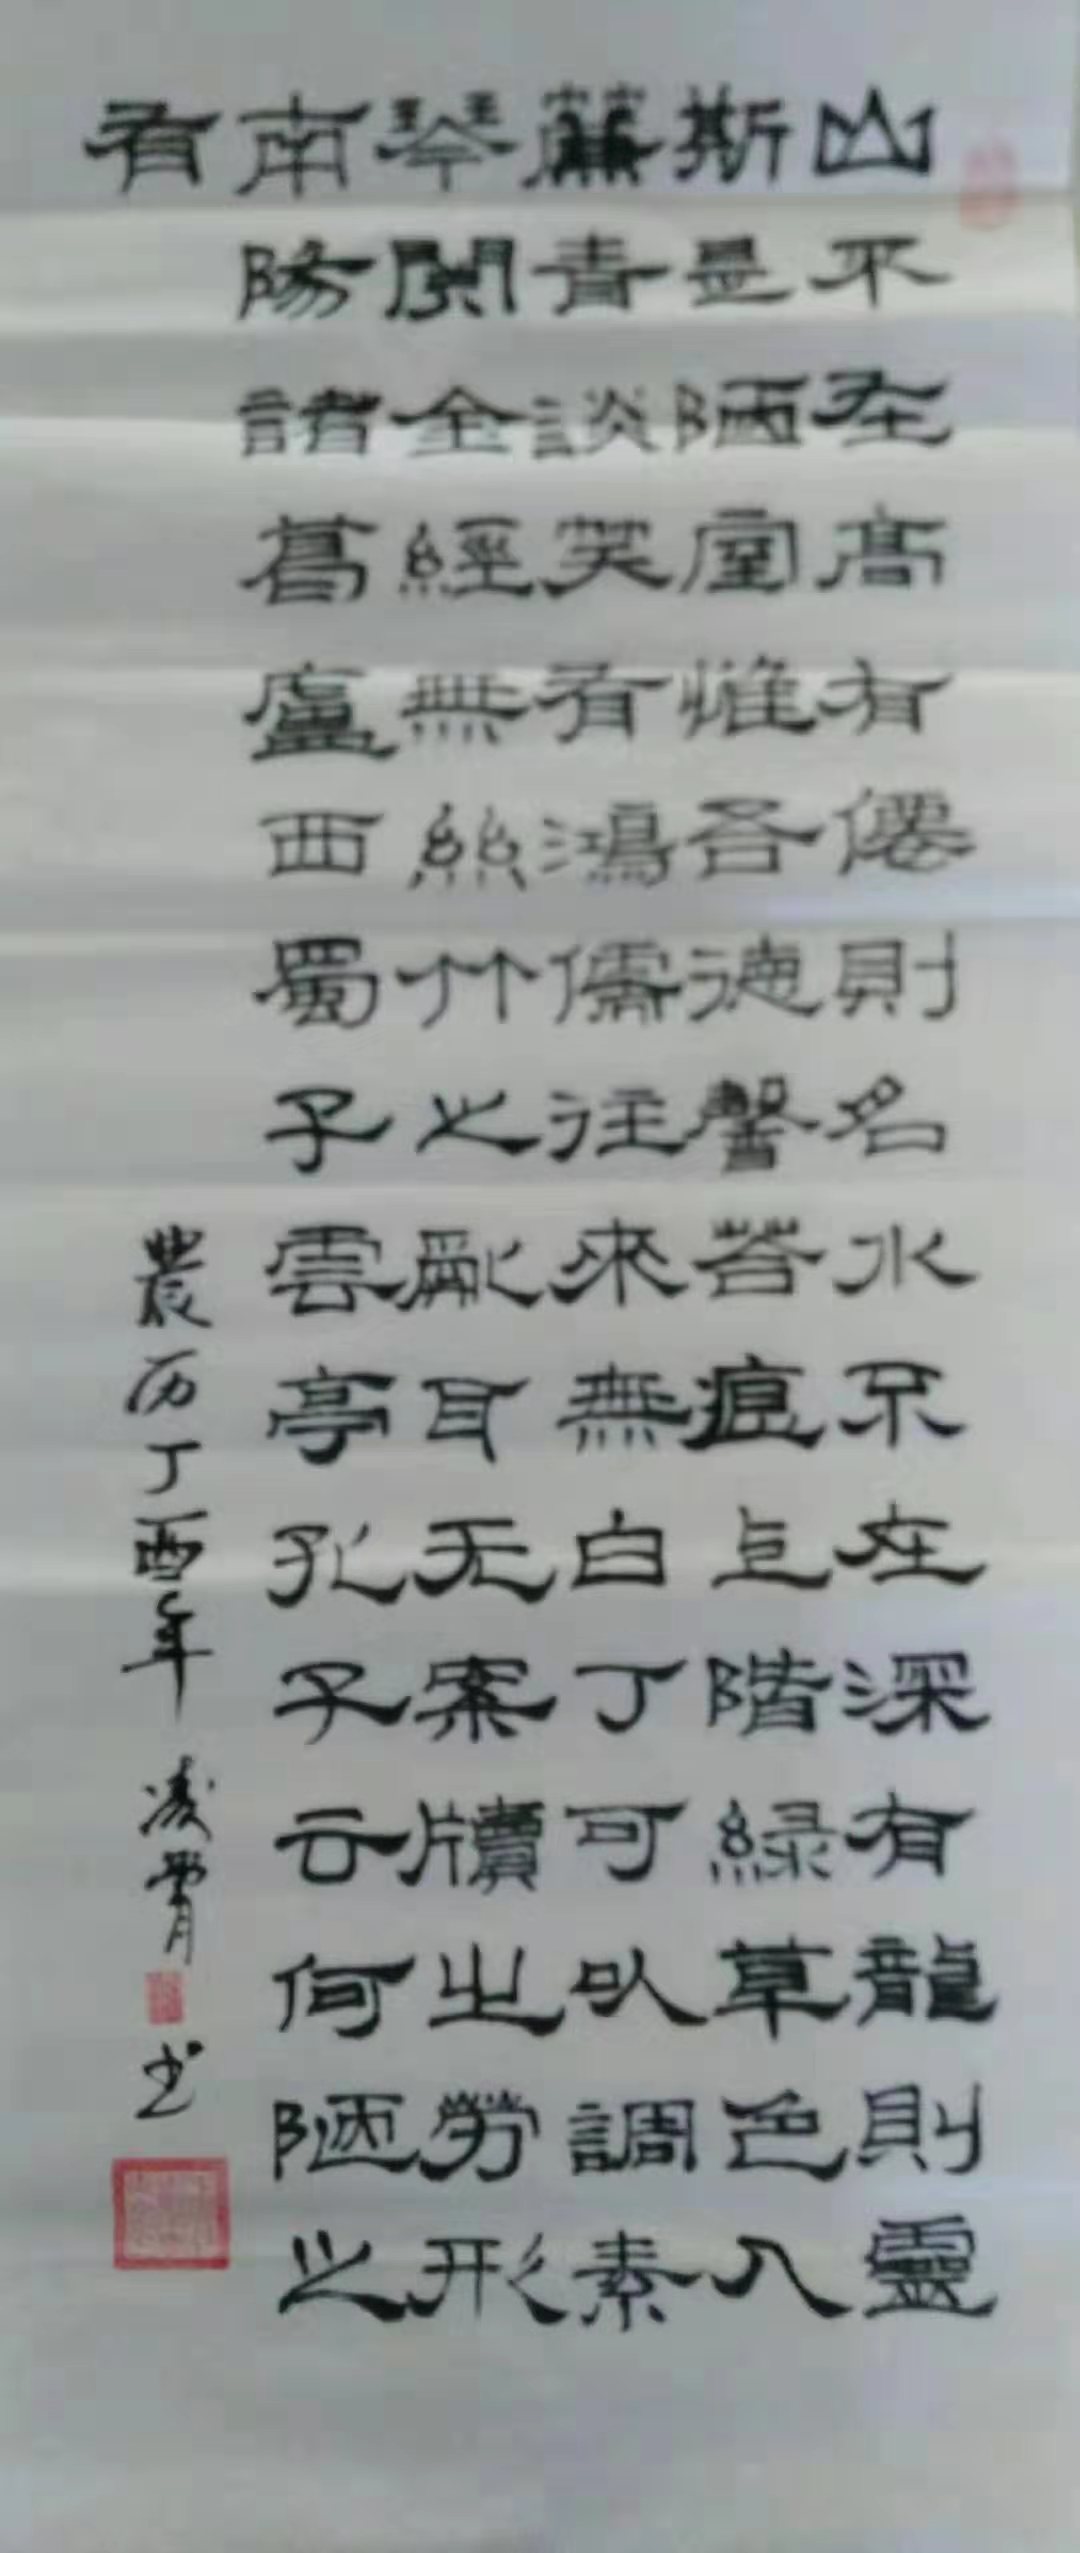 山不在高有僊則名水不在深有龍則靈
斯是陋室惟吾德馨苔痕上階緑草色入
簾青談笑有鴻儒往來無白丁可以調素
琴閱金經無絲竹之亂耳无案牘之勞形
南陽諸葛廬西蜀子雲亭孔子云何陋之
有
農历丁酉年 凌霄 书